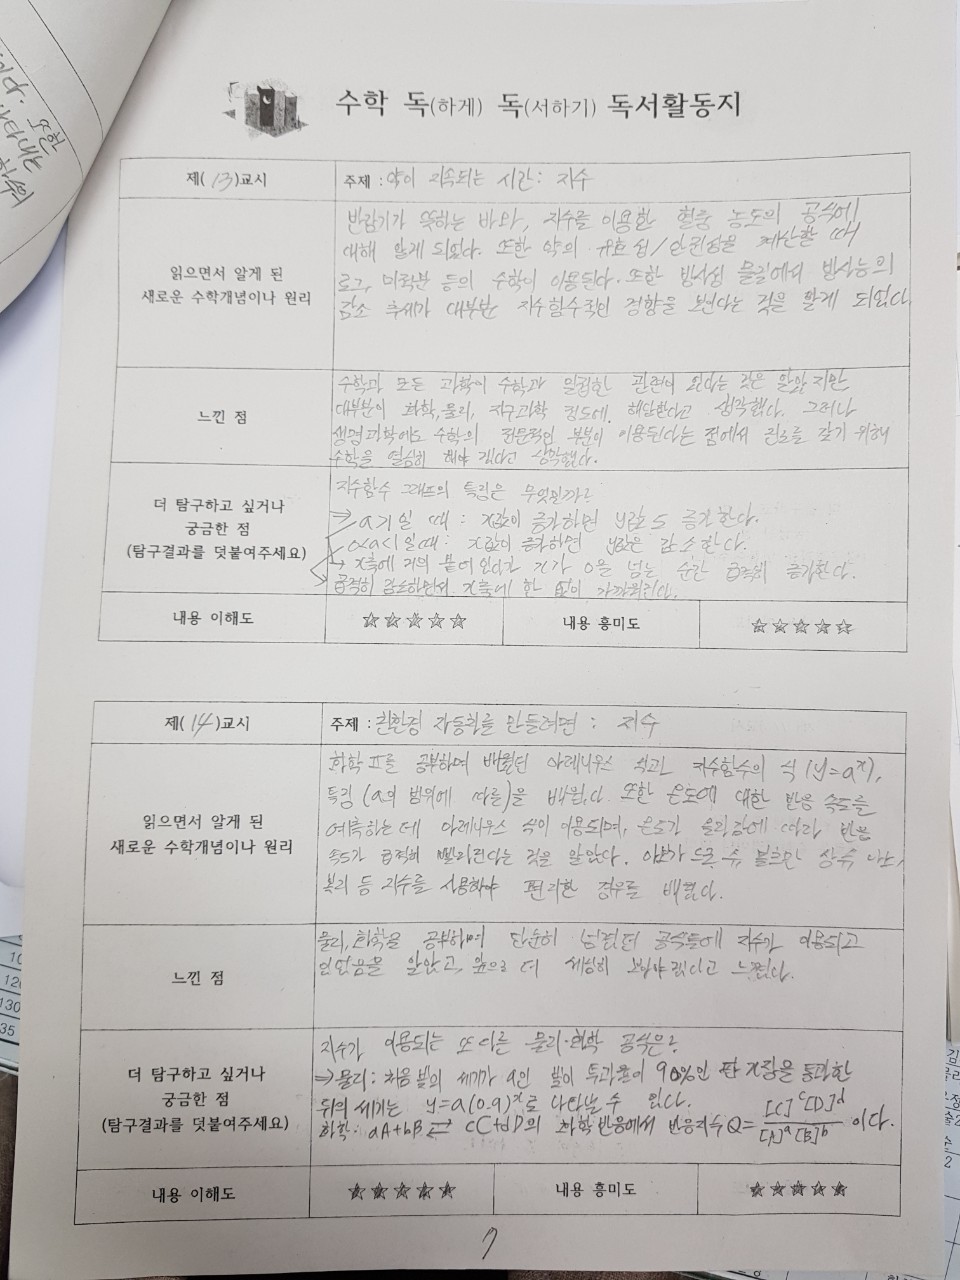 수학 독(하게) 독(서하기) 독서활동지
제( 13 )교시
주제 : 약이 지속되는 시간: 지수
읽으면서 알게 된
새로운 수학개념이나 원리
반감기가 뜻하는 바와, 지수를 이용한 혈중 농도의 공식에
대해 알게 되었다. 또한 약의 유효성/안전성을 계산할 때
로그, 미적분 등의 수학이 이용된다. 또한 방사성 물질에서 방사능의
감소 추세가 대부분 지수함수적인 경향을 보인다는 것을 알게 되었다
느낀 점
수학과 모든 과학이 수학과 밀접한 관련이 있다는 것은 알았지만
대부분이 화학, 물리, 지구과학 정도에 해당한다고 생각했다. 그러나
생명과학에도 수학의 전문적인 부분이 이용된다는 점에서 진로를 갖기 위해
수학을 열심히 해야 겠다고 생각했다.
더 탐구하고 싶거나
궁금한 점
(탐구결과를 덧붙여주세요)
지수함수 그래프의 특징은 무엇일까?
일 때 : x값이 증가하면 y값도 증가한다.
0<a<1일때: x값이 증가하면 y값은 감소한다.
→ x축에 거의 붙어 있다가 x가 0을 넘는 순간 급격히 증가한다.
급격히 감소하면서 x축에 한 없이 가까워진다.
내용 이해도
☆☆☆☆☆
내용 흥미도
☆☆☆☆☆
제( 14 )교시
주제 : 친환경 자동차를 만들려면 : 지수
읽으면서 알게 된
새로운 수학개념이나 원리
화학Ⅱ를 공부하며 배웠던 아레니우스 식과 지수함수의 식 (y=aˣ),
특징 (a의 범위에 따른)을 배웠다. 또한 온도에 대한 반응 속도를
예측하는데 아레니우스 식이 이용되며, 온도가 올라감에 따라 반응
속도가 급격히 빨라진다는 것을 알았다. 아보가드로 수, 볼츠만 상수, 나노,
복리 등 지수를 사용해야 편리한 경우를 배웠다.
느낀 점
물리, 화학을 공부하며 단순히 넘겼던 공식들에 지수가 이용되고
있었음을 알았고, 앞으로 더 세심히 보아야겠다고 느꼈다.
더 탐구하고 싶거나
궁금한 점
(탐구결과를 덧붙여주세요)
지수가 이용되는 또 다른 물리·화학 공식은?
⇒ 물리: 처음 빛의 세기가 a인 빛이 투과율이 90%인 판 x장을 통과한
뒤의 세기는 y=a(0.9)ˣ로 나타낼 수 있다.
화학: aA+bB ⇄ cC+dD의 화학반응에서 반응지수 Q= [C]ᶜ[D]ᵈ / [A]ᵃ[B]ᵇ 이다.
내용 이해도
☆☆☆☆☆
내용 흥미도
☆☆☆☆☆
7